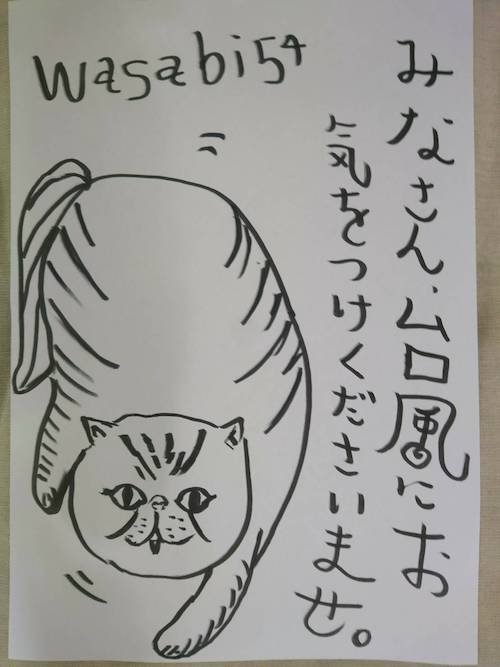 wasabi54
みなさん、台風にお
気をつけくださいませ。